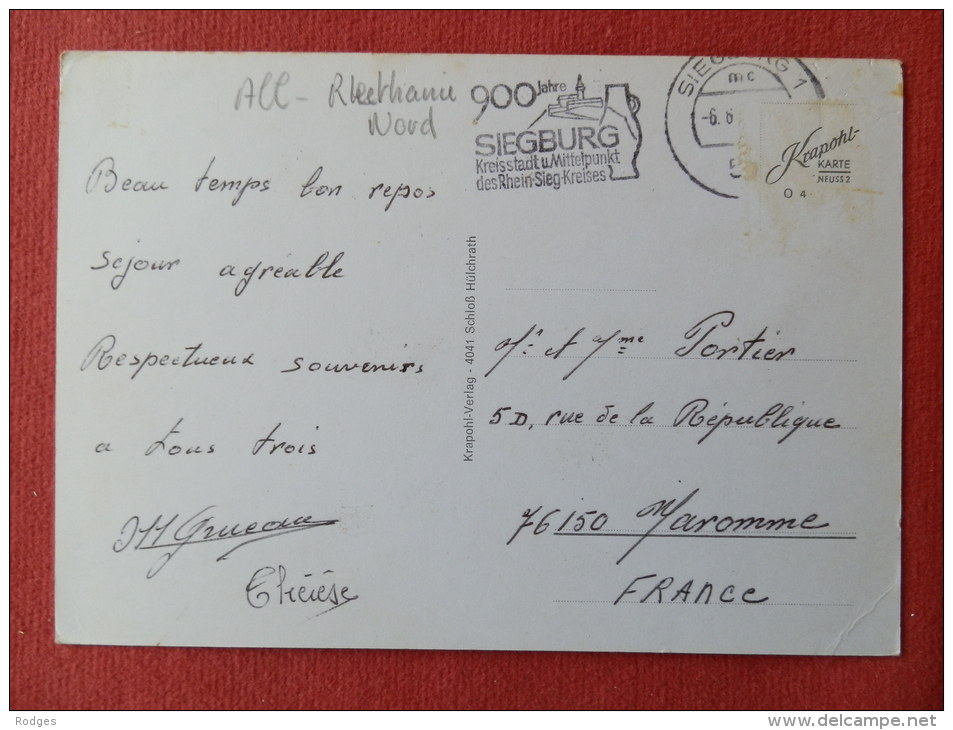 All - Rhethanie
Nord
900 Jahre
SIEGBURG
Kreisstadt u. Mittelpunkt
des Rhein-Sieg-Kreises
SIEGBURG 1
mc
-6.6
Krapohl-
KARTE
NEUSS 2
O 4
Beau temps bon repos
séjour agréable
Respectueux souvenirs
a tous trois
Thérèse
Krapohl-Verlag - 4041 Schloß Hülchrath
Mr et Mme Portier
5D, rue de la République
76150 Maromme
FRANCE
Rodges
www.delcampe.net